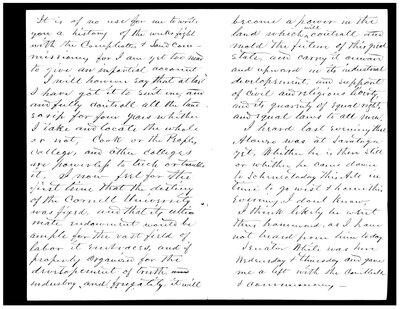 It is of no use for me to write
you a history of the weeks fight
with the Comptroller & Land Com-
missioners for I am yet too mad
to give an impartial account
I will however say that at last
I have got it to suit me, and
and fully controll all the land
scrip for four years whether
I take and locate the whole
or not, Cook or the Peoples
college, and other colleges
are powerless to tuch or trouble
it. I now feel for the
first time that the destiny
of the Cornell University
was fixed, and that its ultim
mate endowment would be
ample for the vast field of
labor it embraces, and if
properly organised for the
development of truth
industry, and frugality. it will
become a power in the
land which will controll and
mold the future of this great
State, and carry it onward
and upward in its industrial
development, and support
of civil and religious liberty
and its guaranty of equal rights
and equal laws to all men.
I heard last evening that
Alonzo was at Saratoga
yet, Whether he is there still
or whether he came down
to Schenectady this A.M. in
time to go west & home this
Evening I dont know.
I think likely he went
thru homeward, as I have
not heard from him today
Senator White was here
Wednesday & Thursday and gave
me a lift with the Comtroller
& commissioners —